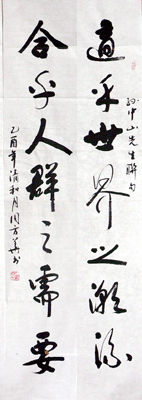 孙中山先生联句
适乎世界之潮流
合乎人群之需要
乙酉年清和月周方美书